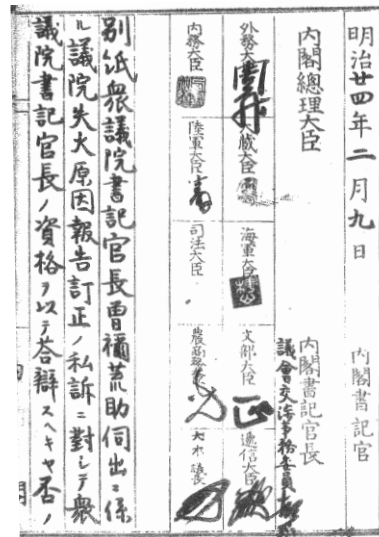 明治廿四年二月九日
内閣書記官
内閣總理大臣
内閣書記官長
議會交渉事務委員長
外務大臣
大藏大臣
海軍大臣
文部大臣
遞信大臣
内務大臣
陸軍大臣
司法大臣
農商務大臣
大木議長
別紙衆議院書記官長曽禰荒助伺出ニ係
ル議院失火原因報告訂正ノ私訴ニ對シテ衆
議院書記官長ノ資格ヲ以テ答辯スヘキヤ否ノ